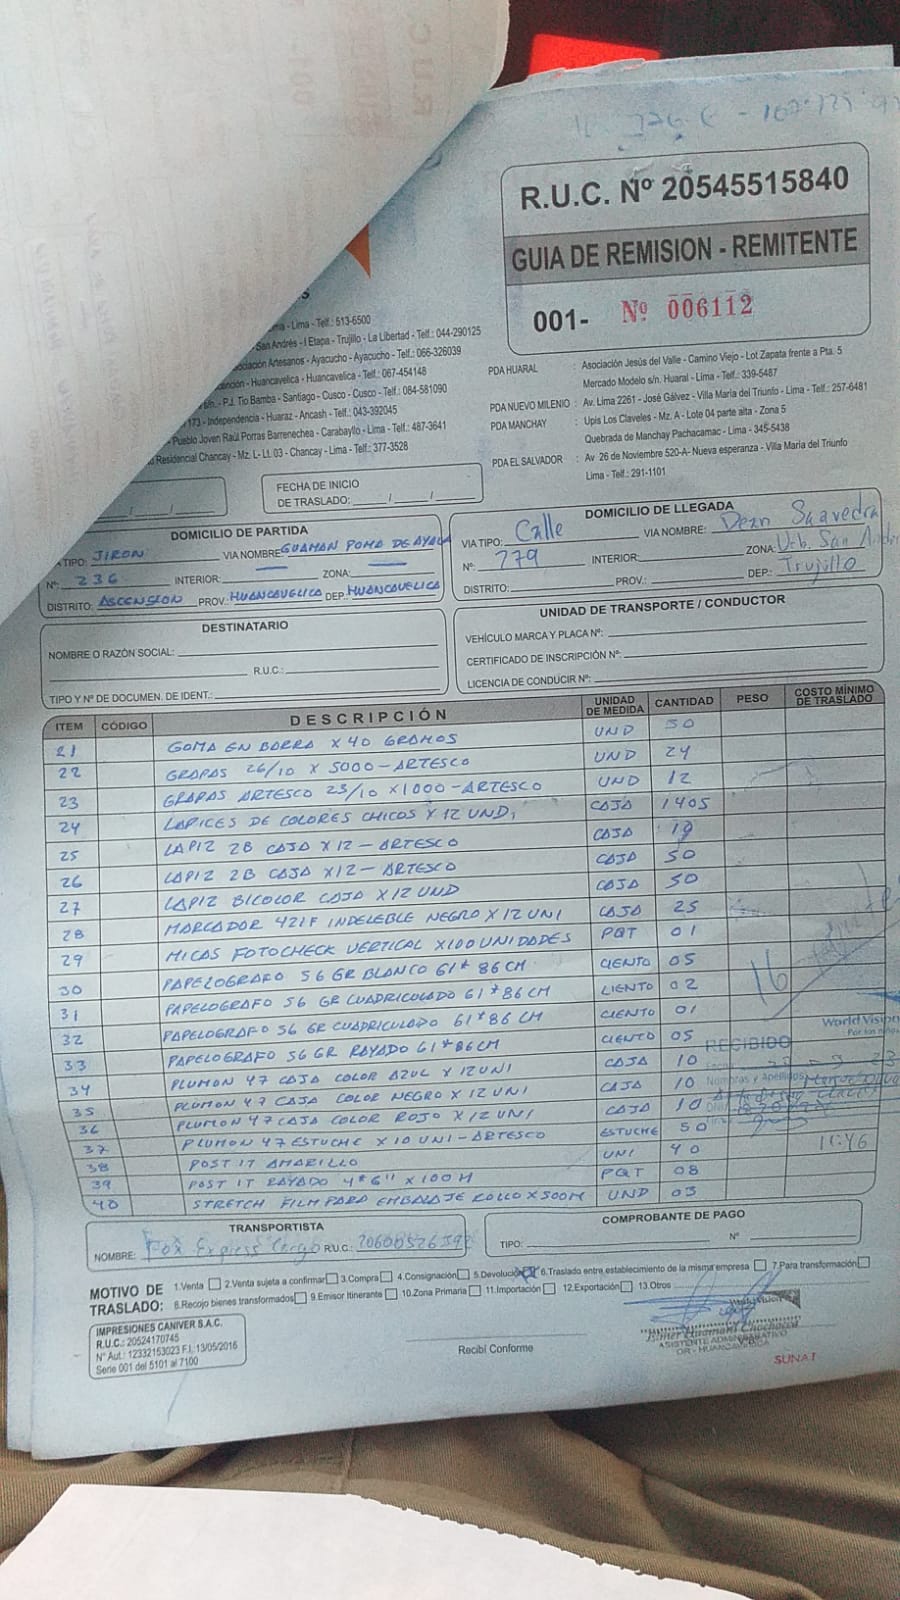 R.U.C. Nº 20545515840
GUIA DE REMISION - REMITENTE
001- Nº 006112
Lima - Telf.: 513-6500
San Andrés - I Etapa - Trujillo - La Libertad - Telf.: 044-290125
Artesanos - Ayacucho - Ayacucho - Telf.: 066-326039
Huancavelica - Huancavelica - Telf.: 067-454148
P.J. Tio Bamba - Santiago - Cusco - Cusco - Telf.: 084-581090
173 - Independencia - Huaraz - Ancash - Telf.: 043-392045
Pueblo Joven Raúl Porras Barrenechea - Carabayllo - Lima - Telf.: 487-3641
Residencial Chancay - Mz. L- Lt. 03 - Chancay - Lima - Telf.: 377-3528
PDA HUARAL : Asociación Jesús del Valle - Camino Viejo - Lot Zapata frente a Pta. 5
Mercado Modelo s/n. Huaral - Lima - Telf.: 339-5487
PDA NUEVO MILENIO : Av. Lima 2261 - José Gálvez - Villa María del Triunfo - Lima - Telf.: 257-6481
PDA MANCHAY : Upis Los Claveles - Mz. A - Lote 04 parte alta - Zona 5
Quebrada de Manchay Pachacamac - Lima - 345-5438
PDA EL SALVADOR : Av. 26 de Noviembre 520-A- Nueva esperanza - Villa Maria del Triunfo
Lima - Telf.: 291-1101
FECHA DE INICIO
DE TRASLADO: / /
DOMICILIO DE PARTIDA
TIPO: JIRON VIA NOMBRE: GUAMAN POMA DE AYALA
Nº: 236 INTERIOR: ZONA:
DISTRITO: ASCENSION PROV.: HUANCAVELICA DEP.: HUANCAVELICA
DOMICILIO DE LLEGADA
VIA TIPO: Calle VIA NOMBRE: Dean Saavedra
Nº: 779 INTERIOR: ZONA: Urb. San Andres
DISTRITO: PROV.: DEP.: Trujillo
DESTINATARIO
NOMBRE O RAZÓN SOCIAL:
R.U.C.:
TIPO Y Nº DE DOCUMEN. DE IDENT.:
UNIDAD DE TRANSPORTE / CONDUCTOR
VEHÍCULO MARCA Y PLACA Nº:
CERTIFICADO DE INSCRIPCIÓN Nº:
LICENCIA DE CONDUCIR Nº:
ITEM CÓDIGO DESCRIPCIÓN UNIDAD DE MEDIDA CANTIDAD PESO COSTO MÍNIMO DE TRASLADO
21 GOMA EN BARRA X 40 GRAMOS UND 50
22 GRAPAS 26/10 X 5000 - ARTESCO UND 24
23 GRAPAS ARTESCO 23/10 X1000 - ARTESCO UND 12
24 LAPICES DE COLORES CHICOS X 12 UND. CAJA 1405
25 LAPIZ 2B CAJA X 12 - ARTESCO CAJA 19
26 LAPIZ 2B CAJA X12 - ARTESCO CAJA 50
27 LAPIZ BICOLOR CAJA X 12 UND CAJA 50
28 MARCADOR 421F INDELEBLE NEGRO X 12 UNI CAJA 25
29 MICAS FOTOCHECK VERTICAL X100 UNIDADES PQT 01
30 PAPELOGRAFO 56 GR BLANCO 61*86 CM CIENTO 05
31 PAPELOGRAFO 56 GR CUADRICULADO 61*86 CM CIENTO 02
32 PAPELOGRAFO 56 GR CUADRICULADO 61*86 CM CIENTO 01
33 PAPELOGRAFO 56 GR RAYADO 61*86CM CIENTO 05
34 PLUMON 47 CAJA COLOR AZUL X 12UNI CAJA 10
35 PLUMON 47 CAJA COLOR NEGRO X 12 UNI CAJA 10
36 PLUMON 47 CAJA COLOR ROJO X 12 UNI CAJA 10
37 PLUMON 47 ESTUCHE X 10 UNI - ARTESCO ESTUCHE 50
38 POST IT AMARILLO UNI 40
39 POST IT RAYADO 4*6" X 100 H PQT 08
40 STRETCH FILM PARA EMBALAJE ROLLO X 500M UND 03
16
World Vision
Por los niños
RECIBIDO
11:46
TRANSPORTISTA
NOMBRE: Fox Express Cargo R.U.C.:
COMPROBANTE DE PAGO
TIPO: Nº
MOTIVO DE TRASLADO: 1.Venta 2.Venta sujeta a confirmar 3.Compra 4.Consignación 5.Devolución 6.Traslado entre establecimiento de la misma empresa 7.Para transformación
8.Recojo bienes transformados 9.Emisor Itinerante 10.Zona Primaria 11.Importación 12.Exportación 13.Otros
IMPRESIONES CANIVER S.A.C.
R.U.C.: 20524170745
Nº Aut.: 12332153023 F.I.: 13/05/2016
Serie 001 del 5101 al 7100
Recibí Conforme
ASISTENTE ADMINISTRATIVO
OR - HUANCAVELICA
SUNAT